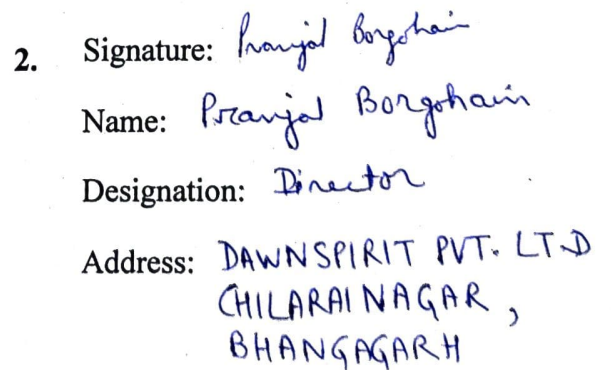 2. Signature: Pranjal Borgohain
Name: Pranjal Borgohain
Designation: Director
Address: DAWNSPIRIT PVT. LTD
CHILARAI NAGAR,
BHANGAGARH